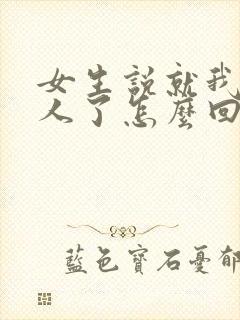 女生說就我
人了怎麼回
藍色寶石憂郁